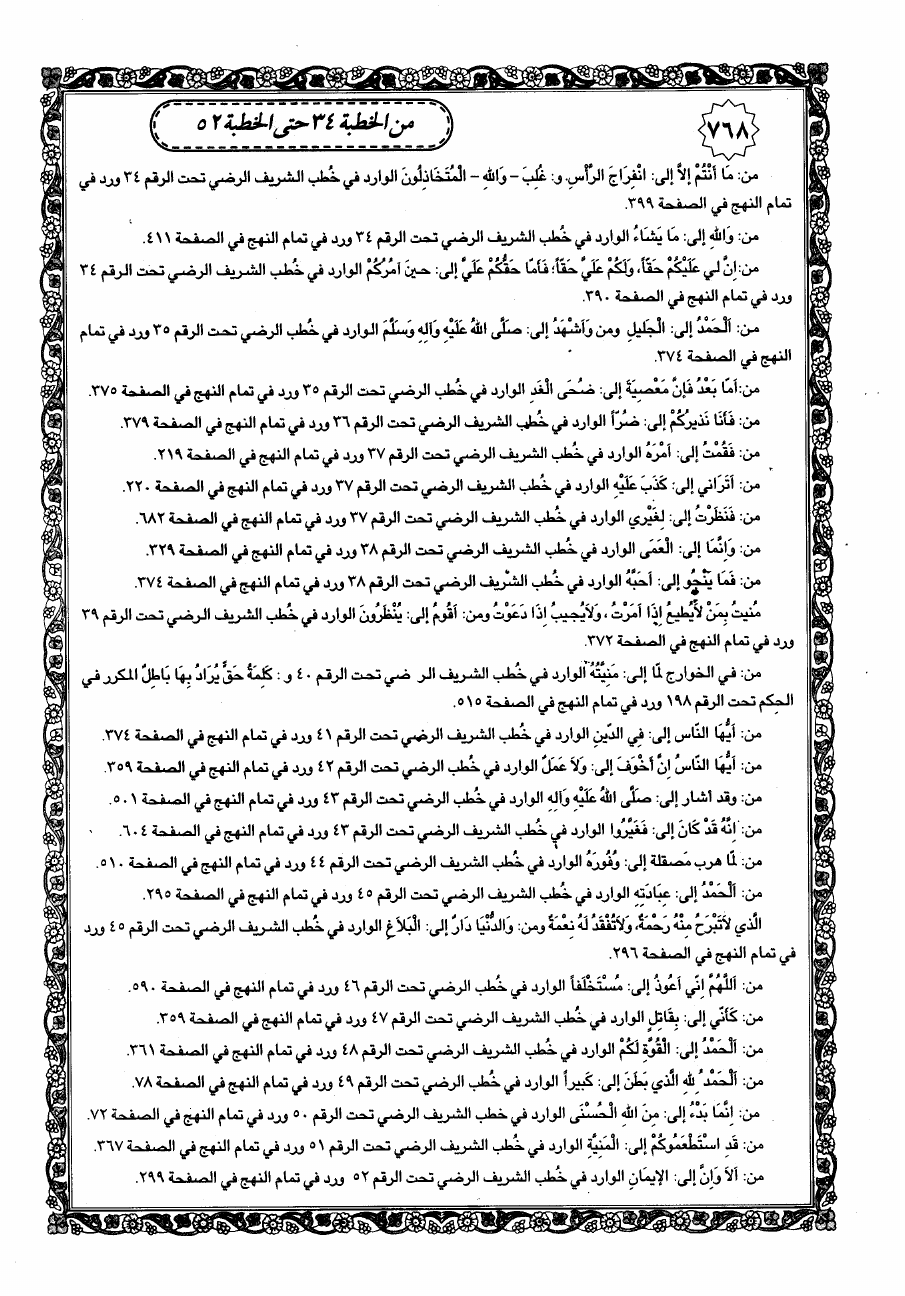 ٧٦٨
من الخطبة ٣٤ حتى الخطبة ٥٢
من: مَا أَنْتُمْ إلاَّ إلى: انْفِرَاجَ الرَّأْسِ. و: غُلِبَ - وَاللهِ - الْمُتَخَاذِلُونَ الوارد في خُطب الشريف الرضي تحت الرقم ٣٤ ورد في
تمام النهج في الصفحة ٣٩٩.
من: وَاللهِ إلى: مَا يَشَاءُ الوارد في خُطب الشريف الرضي تحت الرقم ٣٤ ورد في تمام النهج في الصفحة ٤١١.
من:إنَّ لي عَلَيْكُمْ حَقّاً، وَلَكُمْ عَلَيَّ حَقّاً؛ فَأَمَّا حَقُّكُمْ عَلَيَّ إلى: حينَ آمُرُكُمْ الوارد في خُطب الشريف الرضي تحت الرقم ٣٤
ورد في تمام النهج في الصفحة ٣٩٠.
من: اَلْحَمْدُ إلى: الْجَليلِ ومن وَأَشْهَدُ إلى: صَلَّى اللهُ عَلَيْهِ وَآلِهِ وَسَلَّمَ الوارد في خُطب الشريف الرضي تحت الرقم ٣٥ ورد في تمام
النهج في الصفحة ٣٧٤.
من:أَمَّا بَعْدُ فَإِنَّ مَعْصِيَةَ إلى: ضُحَى الْغَدِ الوارد في خُطب الشريف الرضي تحت الرقم ٣٥ ورد في تمام النهج في الصفحة ٣٧٥.
من: فَأَنَا نَذيرُكُمْ إلى: ضُرّاً الوارد في خُطب الشريف الرضي تحت الرقم ٣٦ ورد في تمام النهج في الصفحة ٣٧٩.
من: فَقُمْتُ إلى: أَمْرَهُ الوارد في خُطب الشريف الرضي تحت الرقم ٣٧ ورد في تمام النهج في الصفحة ٢١٩.
من: أَتَرَاني إلى: كَذَبَ عَلَيْهِ الوارد في خُطب الشريف الرضي تحت الرقم ٣٧ ورد في تمام النهج في الصفحة ٢٢٠.
من: فَنَظَرْتُ إلى: لِغَيْري الوارد في خُطب الشريف الرضي تحت الرقم ٣٧ ورد في تمام النهج في الصفحة ٦٨٢.
من: وَإِنَّمَا إلى: الْعَمَى الوارد في خُطب الشريف الرضي تحت الرقم ٣٨ ورد في تمام النهج في الصفحة ٣٢٩.
من: فَمَا يَنْجُو إلى: أَحَبَّهُ الوارد في خُطب الشريف الرضي تحت الرقم ٣٨ ورد في تمام النهج في الصفحة ٣٧٤.
مُنيتُ بِمَنْ لاَيُطيعُ إِذَا أَمَرْتُ، وَلاَيُجيبُ إِذَا دَعَوْتُ ومن: أَقُومُ إلى: يُنْظَرُونَ الوارد في خُطب الشريف الرضي تحت الرقم ٣٩
ورد في تمام النهج في الصفحة ٣٧٢.
من: في الخوارج لمّا إلى: مَنِيَّتُهُ الوارد في خُطب الشريف الرضي تحت الرقم ٤٠ و: كَلِمَةُ حَقٍّ يُرَادُ بِهَا بَاطِلٌ المكرر في
الحِكم تحت الرقم ١٩٨ ورد في تمام النهج في الصفحة ٥١٥.
من: أَيُّهَا النَّاس إلى: فِي الدِّينِ الوارد في خُطب الشريف الرضي تحت الرقم ٤١ ورد في تمام النهج في الصفحة ٣٧٤.
من: أَيُّهَا النَّاسُ إنَّ أَخْوَفَ إلى: وَلاَ عَمَلٌ الوارد في خُطب الشريف الرضي تحت الرقم ٤٢ ورد في تمام النهج في الصفحة ٣٥٩.
من: وقد أشار إلى: صَلَّى اللهُ عَلَيْهِ وَآلِهِ الوارد في خُطب الشريف الرضي تحت الرقم ٤٣ ورد في تمام النهج في الصفحة ٥٠١.
من: إنَّهُ قَدْ كَانَ إلى: فَغَيَّرُوا الوارد في خُطب الشريف الرضي تحت الرقم ٤٣ ورد في تمام النهج في الصفحة ٦٠٤.
من: لمّا هرب مَصقلة إلى: وُفُورَهُ الوارد في خُطب الشريف الرضي تحت الرقم ٤٤ ورد في تمام النهج في الصفحة ٥١٠.
من: اَلْحَمْدُ إلى: عِبَادَتِهِ الوارد في خُطب الشريف الرضي تحت الرقم ٤٥ ورد في تمام النهج في الصفحة ٢٩٥.
الَّذي لاَتَبْرَحُ مِنْهُ رَحْمَةٌ، وَلاَتُفْقَدُ لَهُ نِعْمَةٌ ومن: وَالدُّنْيَا دَارٌ إلى: الْبَلاَغِ الوارد في خُطب الشريف الرضي تحت الرقم ٤٥ ورد
في تمام النهج في الصفحة ٢٩٦.
من: اَللَّهُمَّ إنّي أَعُوذُ إلى: مُسْتَخْلَفاً الوارد في خُطب الشريف الرضي تحت الرقم ٤٦ ورد في تمام النهج في الصفحة ٥٩٠.
من: كَأَنّي إلى: بِقَاتِلٍ الوارد في خُطب الشريف الرضي تحت الرقم ٤٧ ورد في تمام النهج في الصفحة ٣٥٩.
من: اَلْحَمْدُ إلى: الْقُوَّةِ لَكُمْ الوارد في خُطب الشريف الرضي تحت الرقم ٤٨ ورد في تمام النهج في الصفحة ٣٦١.
من: اَلْحَمْدُ لِلهِ الَّذي بَطَنَ إلى: كَبيراً الوارد في خُطب الشريف الرضي تحت الرقم ٤٩ ورد في تمام النهج في الصفحة ٧٨.
من: إِنَّمَا بَدْءُ إلى: مِنَ اللهِ الْحُسْنَى الوارد في خطب الشريف الرضي تحت الرقم ٥٠ ورد في تمام النهج في الصفحة ٧٢.
من: قَدِ اسْتَطْعَمُوكُمْ إلى: الْمَنِيَّةِ الوارد في خُطب الشريف الرضي تحت الرقم ٥١ ورد في تمام النهج في الصفحة ٣٦٧.
من: أَلاَ وَإِنَّ إلى: الإيمَانِ الوارد في خُطب الشريف الرضي تحت الرقم ٥٢ ورد في تمام النهج في الصفحة ٢٩٩.